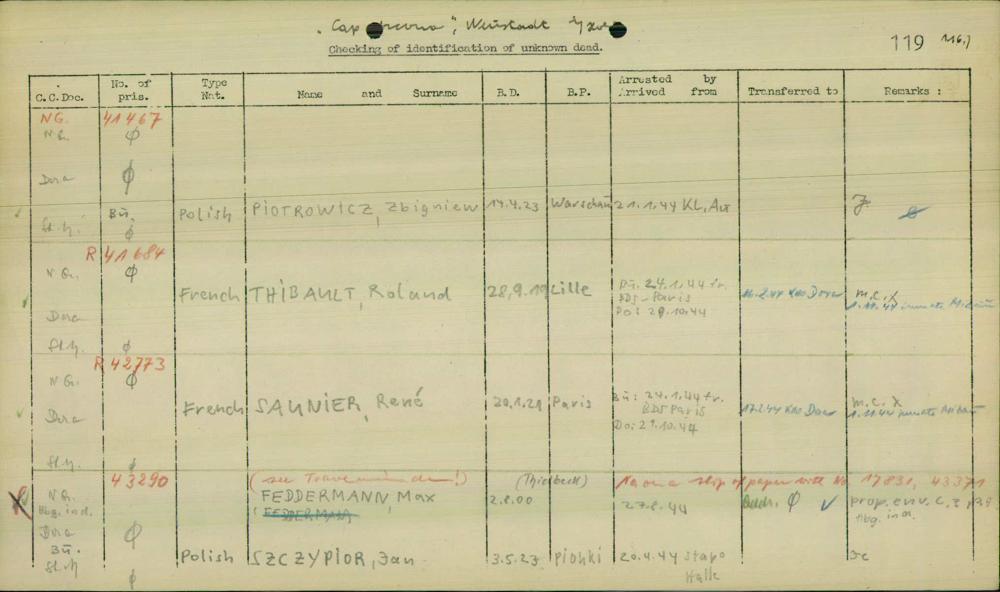 "Cap Arcona", Neustadt
Checking of identification of unknown dead.
119
C.C.Doc. No. of pris. Type Nat. Name and Surname B.D. B.P. Arrested by Arrived from Transferred to Remarks :
NG. 41467
N G. Ø
Dora Ø
Bü.
St.H. Ø Polish PIOTROWICZ, Zbigniew 14.4.23 Warschau 21.1.44 KL. Au J
R 41684
N Gr. Ø
French THIBAULT, Roland 28.9.19 Lille Bü: 24.1.44 fr. BDS-Paris Do: 29.10.44 16.2.44 Kdo Dora m.c. X
Dora
St.H. Ø
R 42773
N G. Ø
Dora French SAUNIER, René 20.1.21 Paris Bü: 24.1.44 fr. BDS Paris Do: 29.10.44 17.2.44 Kdo Dora m.c. X
St.H. Ø
43290 (see Travemünde!) (Thielbeck) Na on a slip of paper with No 17831, 43371
N G. FEDDERMANN, Max 2.8.00 27.8.44 Ø prop. env. C.
Hbg. ind. FEDDERMANN Hbg. ind.
Dora Ø
Bü. Polish SZCZYPIOR, Jan 3.5.23 Pionki 20.4.44 Stapo Halle
St.H Ø